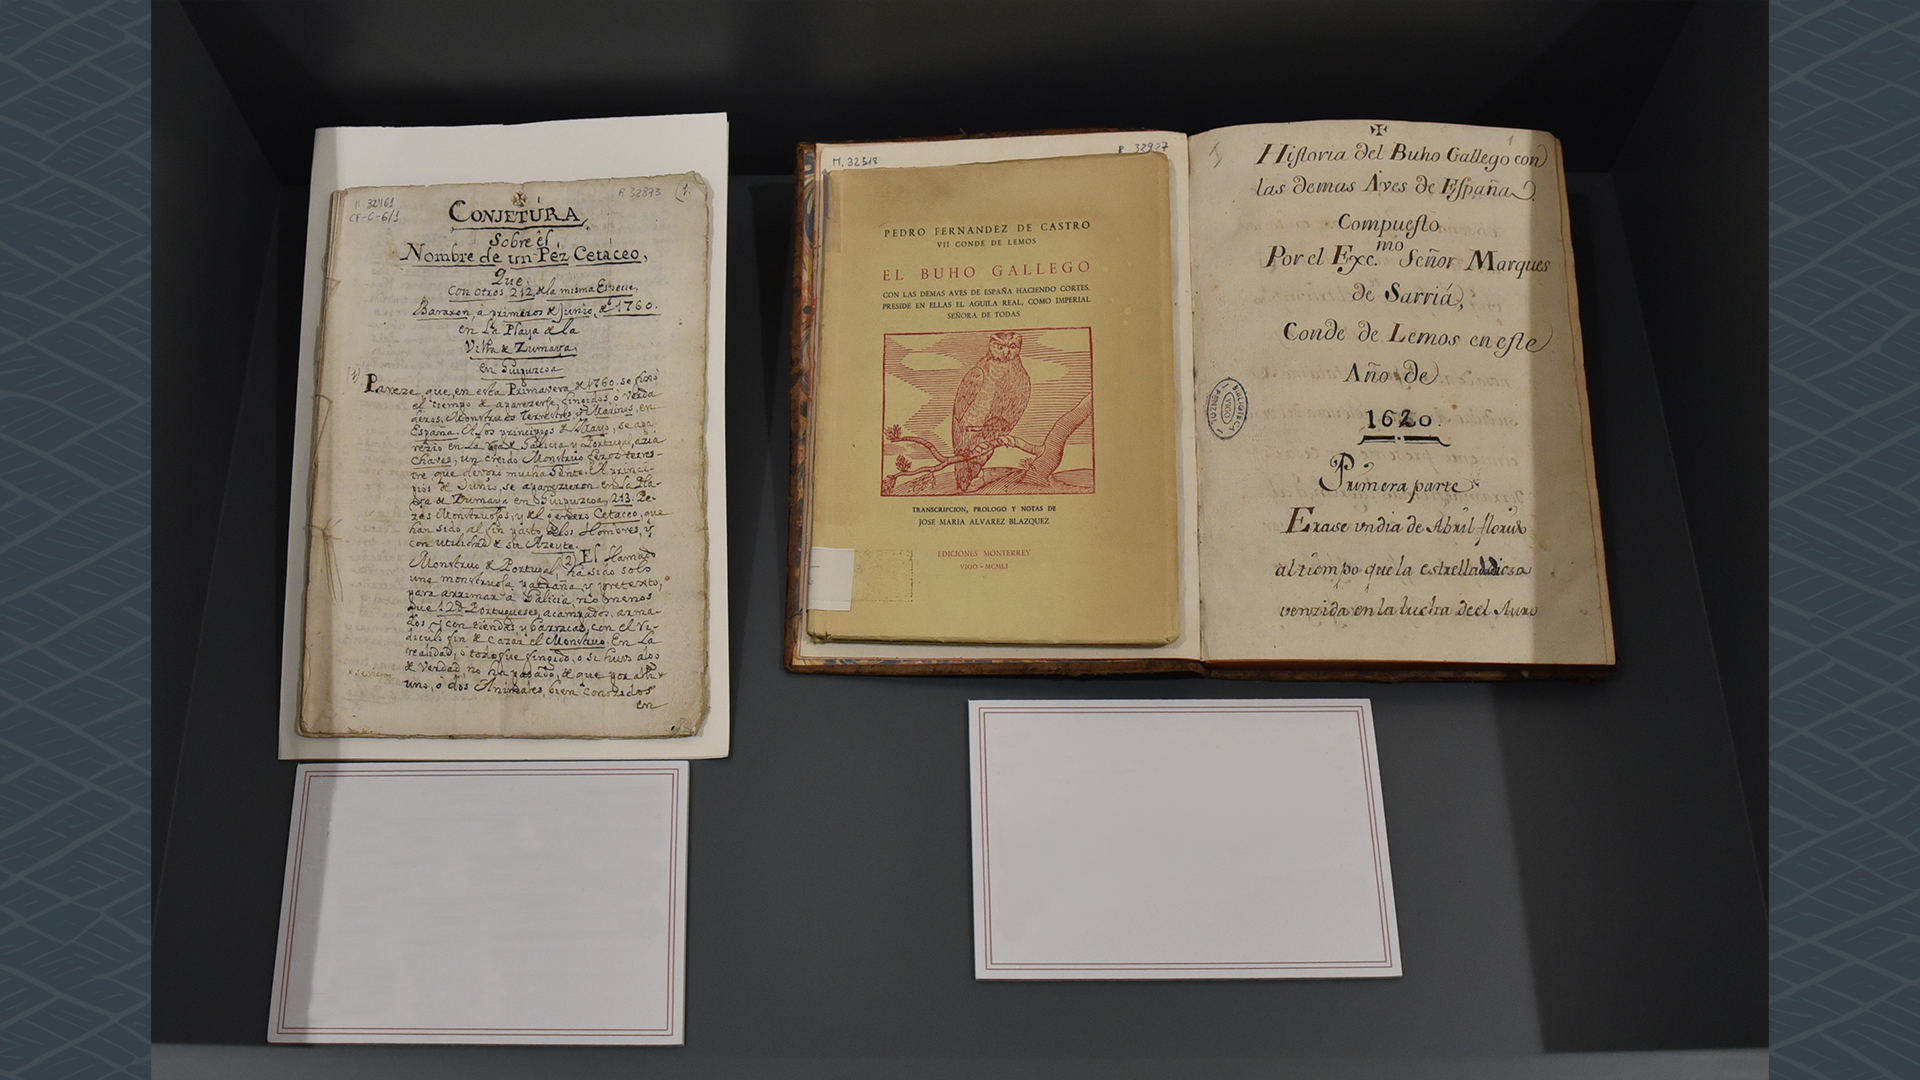 R 32461
CF-C-6/1
R 32873
(1.
CONJETÚRA
Sobre êl
Nombre de un Péz Cetáceo,
Que,
Con otros 212, de la misma Especie,
Bararon, à primeros de Junio, de 1760.
en La Playa de la
Villa de Zumaya,
en Guipuzcoa
(1) Pareze, que en esta Primavera de 1760. se fixó
el tiempo de aparezerse, fingidos, o verda
deros, Monstruos Terrestres, y Marinos, en
España. A los principios de Mayo, se apa
rezio en La de Galicia y Portugal, azia
Chaves, un creido Monstruo feroz terres-
tre, que devoró mucha Gente. A princi-
pios de Junio, se aparezieron en La Pla-
ya de Zumaya en Guipuzcoa, 213. Pe-
zes Monstruosos, y del genero Cetaceo, que
han sido al fin pasto de los Hombres, y
con utilidad de su Azeyte.
(2) El llamado
Monstruo de Portugal, ha sido solo
una monstruosa patraña, y pretexto,
para arrimar a Galicia, no menos
que Portugueses, acampados, arma-
dos, y con tiendas y barracas, con el ri-
diculo fin de cazar el Monstruo. En La
realidad, o todo fue fingido, o si huvo algo
de verdad, no ha pasado, de que por alli
uno, o dos Animales, bien conozidos
en
M. 32518
R 32927
PEDRO FERNANDEZ DE CASTRO
VII CONDE DE LEMOS
EL BUHO GALLEGO
CON LAS DEMAS AVES DE ESPAÑA HACIENDO CORTES.
PRESIDE EN ELLAS EL AGUILA REAL, COMO IMPERIAL
SEÑORA DE TODAS
TRANSCRIPCION, PROLOGO Y NOTAS DE
JOSE MARIA ALVAREZ BLAZQUEZ
EDICIONES MONTERREY
VIGO - MCMLI
1
Historia del Buho Gallego con
las demas Aves de España.
Compuesto
Por el Exc.mo Señor Marques
de Sarriá,
Conde de Lemos en este
Año de
1620.
Primera parte
Erase un dia de Abril florido
al tiempo que la estrella
venzida en la lucha de el Auro
BIBLIOTECA
VIGO
PENZOL